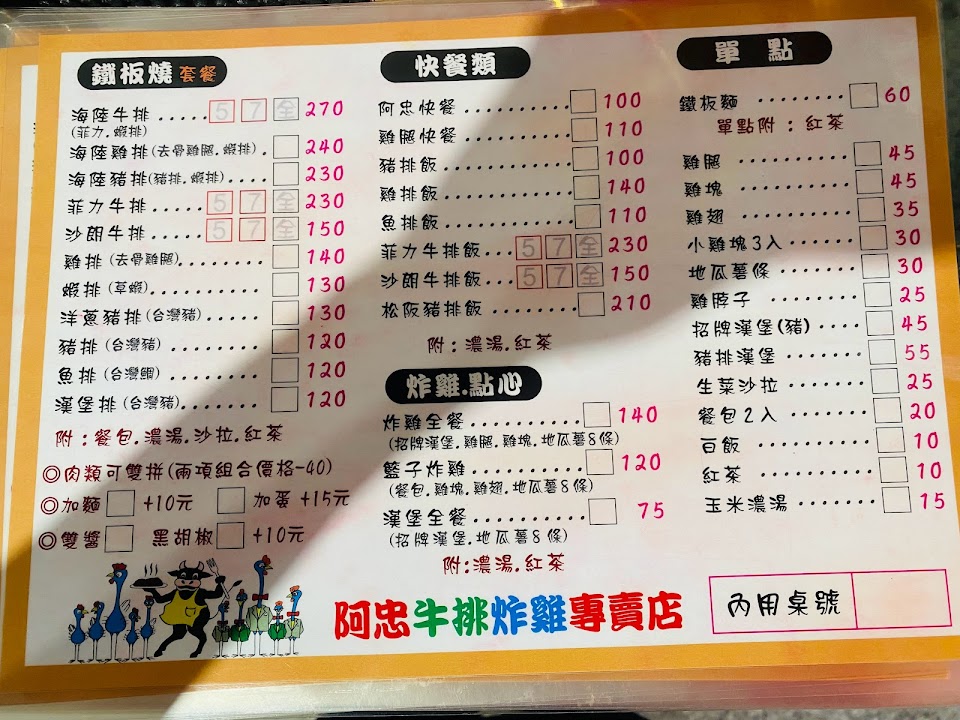 鐵板燒 套餐
海陸牛排.....5 7 全 270
(菲力.蝦排)
海陸雞排(去骨雞腿.蝦排). 240
海陸豬排(豬排.蝦排)... 230
菲力牛排.....5 7 全 230
沙朗牛排.....5 7 全 150
雞排(去骨雞腿)....... 140
蝦排(草蝦).......... 130
洋蔥豬排(台灣豬)..... 130
豬排(台灣豬)........ 120
魚排(台灣鯛)........ 120
漢堡排(台灣豬)....... 120
附:餐包.濃湯.沙拉.紅茶
◎肉類可雙拼(兩項組合價格-40)
◎加麵 +10元 加蛋 +15元
◎雙醬 黑胡椒 +10元
快餐類
阿忠快餐.......... 100
雞腿快餐.......... 110
豬排飯............ 100
雞排飯............ 140
魚排飯............ 110
菲力牛排飯...5 7 全 230
沙朗牛排飯...5 7 全 150
松阪豬排飯........ 210
附:濃湯.紅茶
炸雞.點心
炸雞全餐.......... 140
(招牌漢堡.雞腿.雞塊.地瓜薯8條)
籃子炸雞.......... 120
(餐包.雞塊.雞翅.地瓜薯8條)
漢堡全餐.......... 75
(招牌漢堡.地瓜薯8條)
附:濃湯.紅茶
單點
鐵板麵........ 60
單點附:紅茶
雞腿.......... 45
雞塊.......... 45
雞翅.......... 35
小雞塊3入...... 30
地瓜薯條....... 30
雞脖子........ 25
招牌漢堡(豬).... 45
豬排漢堡....... 55
生菜沙拉....... 25
餐包2入........ 20
白飯.......... 10
紅茶.......... 10
玉米濃湯....... 15
阿忠牛排炸雞專賣店
內用桌號